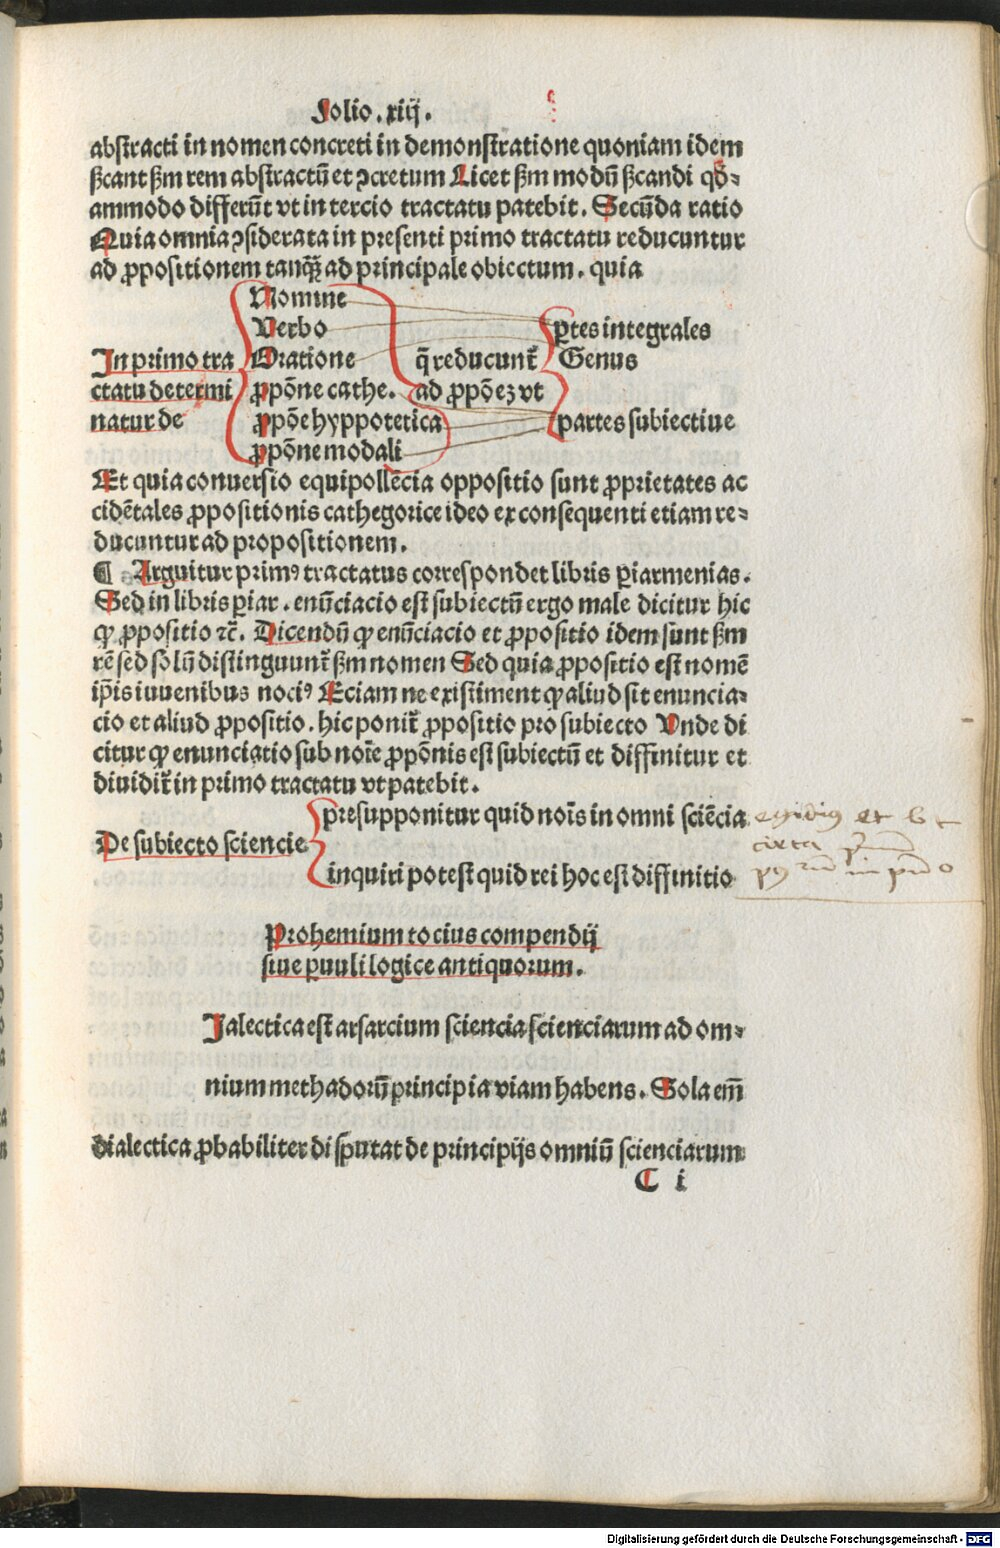 Folio .xiij.
abstracti in nomen concreti in demonstratione quoniam idem
ſẜcant ẜm rem abstractū et ꝯcretum Licet ẜm modū ſẜcandi qͦd-
ammodo differūt vt in tercio tractatu patebit. Secūda ratio
Quia omnia ꝯsiderata in presenti primo tractatu reducuntur
ad ꝓpositionem tanq̄ꝫ ad principale obiectum. quia
Nomine
Verbo
Oratione
ꝓpōne cathe.
ꝓpōe hyppotetica
ꝓpōne modali
In primo tra
ctatu determi
natur de
q̄ reducunt᷑
ad ꝓpōeꝫ vt
ꝑtes integrales
Genus
partes subiectiue
Et quia conuersio equipollēcia oppositio sunt ꝓprietates ac
cidētales ꝓpositionis cathegorice ideo ex consequenti etiam re-
ducuntur ad propositionem.
¶ Arguitur primꝰ tractatus correspondet libris ꝑiarmenias.
Sed in libris ꝑiar. enūciacio est subiectū ergo male dicitur hic
ꝙ ꝓpositio ⁊c̄. Dicendū ꝙ enūciacio et ꝓpositio idem sunt ẜm
rē sed solū distinguunt᷑ ẜm nomen Sed quia ꝓpositio est nomē
ip̄is iuuenibus nociꝰ Eciam ne existiment ꝙ aliud sit enuncia-
cio et aliud ꝓpositio. hic ponit᷑ ꝓpositio pro subiecto Unde di
citur ꝙ enunciatio sub noīe ꝓpōnis est subiectū et diffinitur et
diuidit᷑ in primo tractatu vt patebit.
De subiecto sciencie
presupponitur quid noīs in omni sciēcia
inquiri potest quid rei hoc est diffinitio
egidius et
circa
in
Prohemium tocius compendij
siue ꝑuuli logice antiquorum.
Ialectica est ars arcium sciencia scienciarum ad om-
nium methadorū principia viam habens. Sola em̄
dialectica ꝓbabiliter disputat de principijs omniū scienciarum
C i
Digitalisierung gefördert durch die Deutsche Forschungsgemeinschaft - DFG